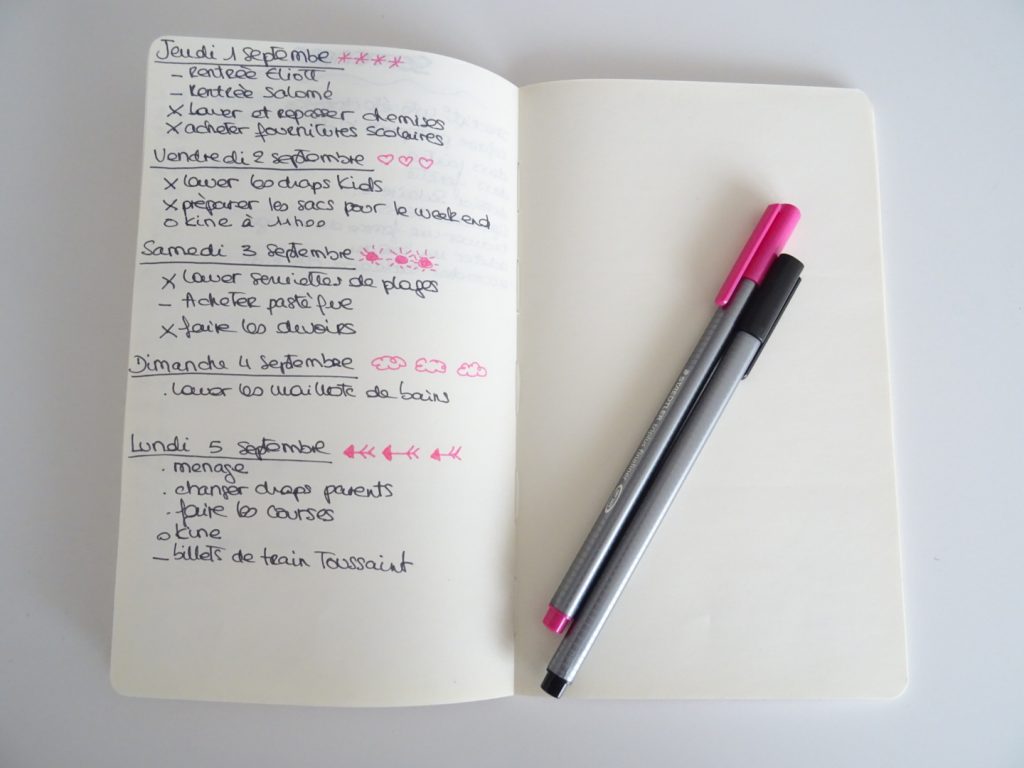 Jeudi 1 Septembre ****
- Rentrée Eliott
- Rentrée Salomé
x Laver et repasser chemises
x acheter fournitures scolaires
Vendredi 2 septembre ♡♡♡
x laver les draps kids
x préparer les sacs pour le weekend
o kine à 11h00
Samedi 3 septembre
x laver serviettes de plages
- Acheter pastèque
x faire les devoirs
Dimanche 4 septembre
. laver les maillots de bain
Lundi 5 septembre
. menage
. changer draps parents
. faire les courses
o kine
- billets de train Toussaint
STAEDTLER triplus fineliner